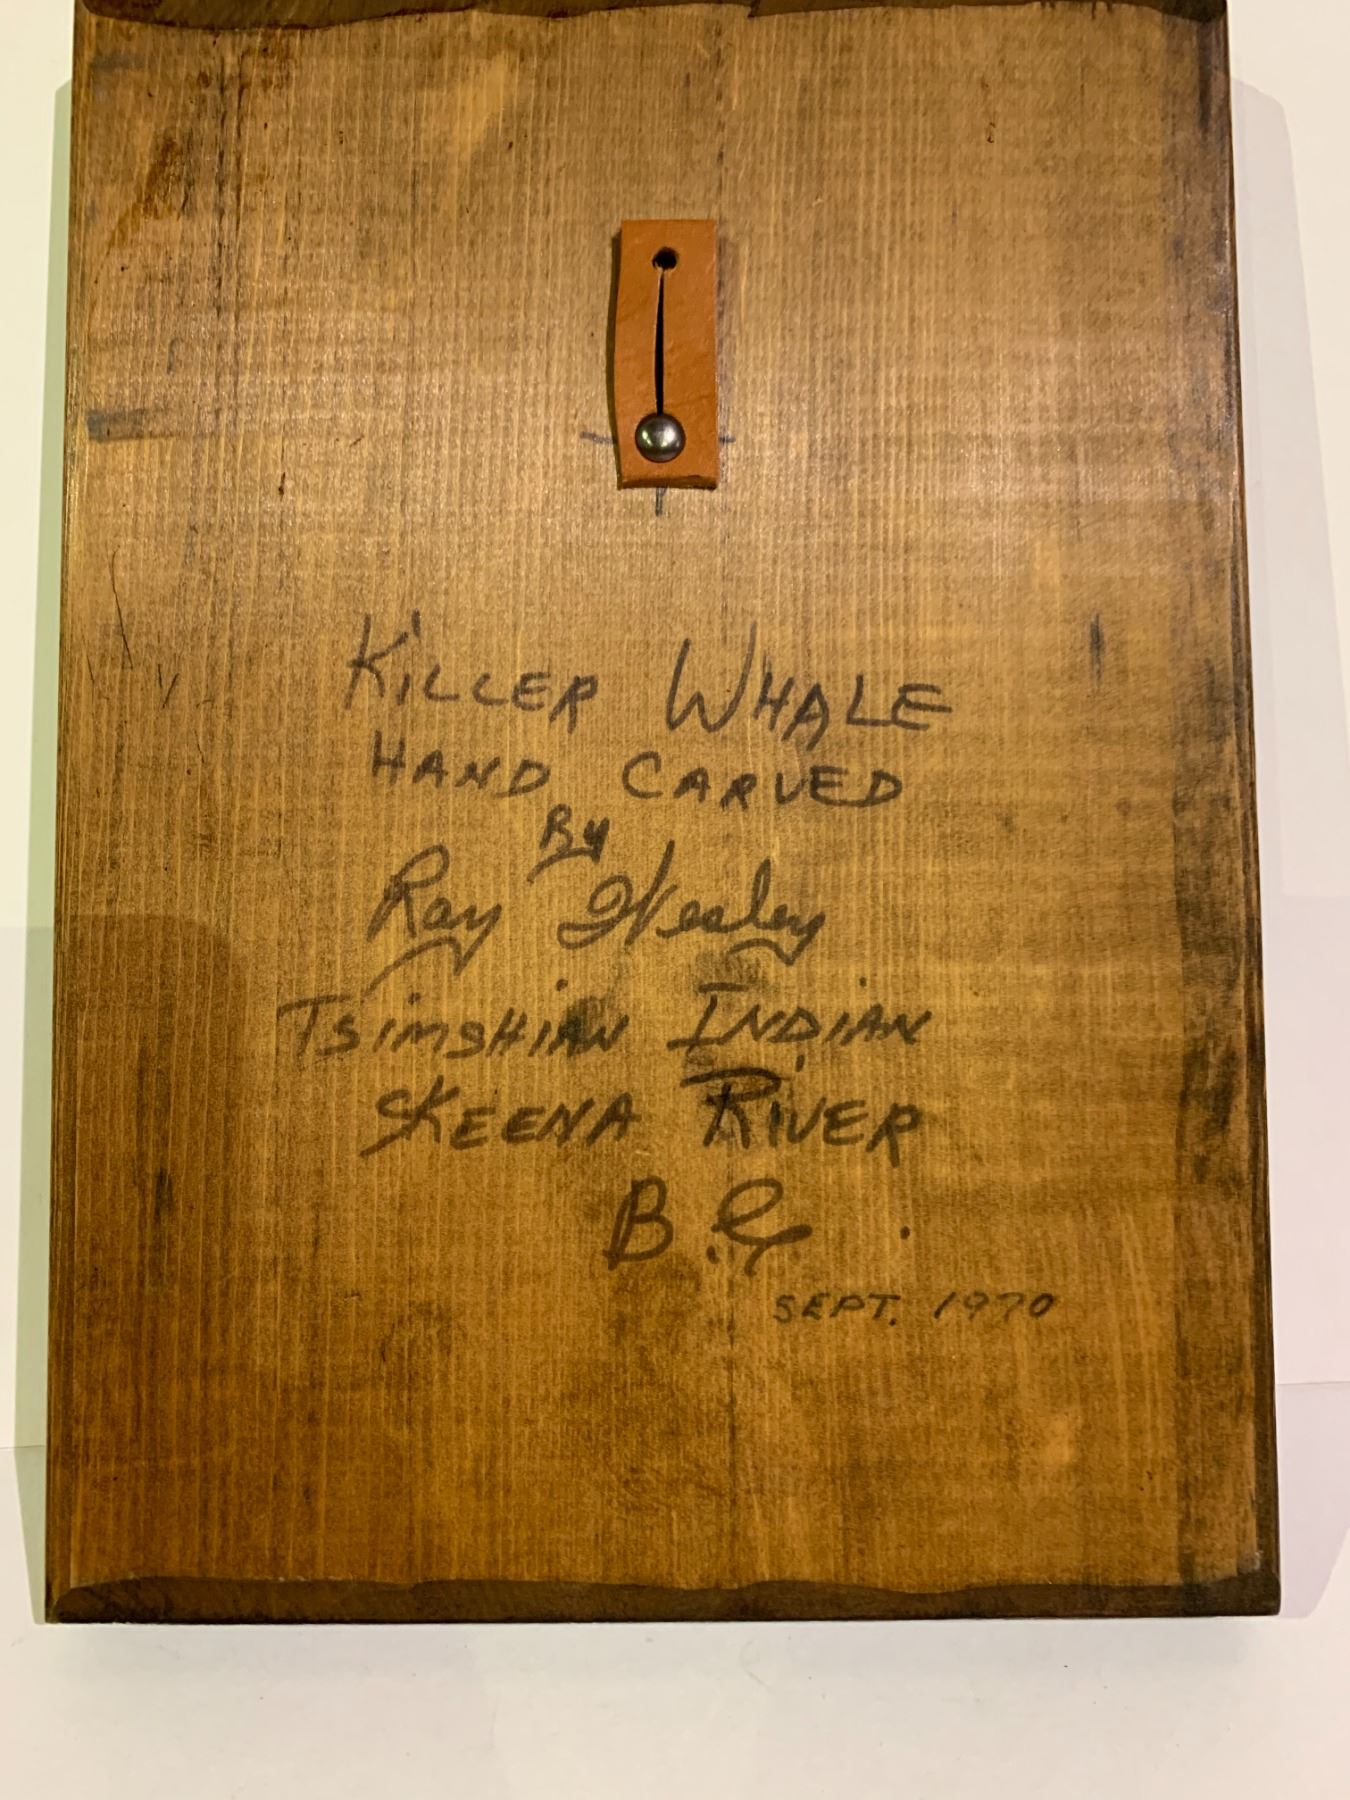 KILLER WHALE
HAND CARVED
By
Ray Wesley
TSimSHiAN INDiAN
SKEENA RIVER
B.C.
SEPT. 1970